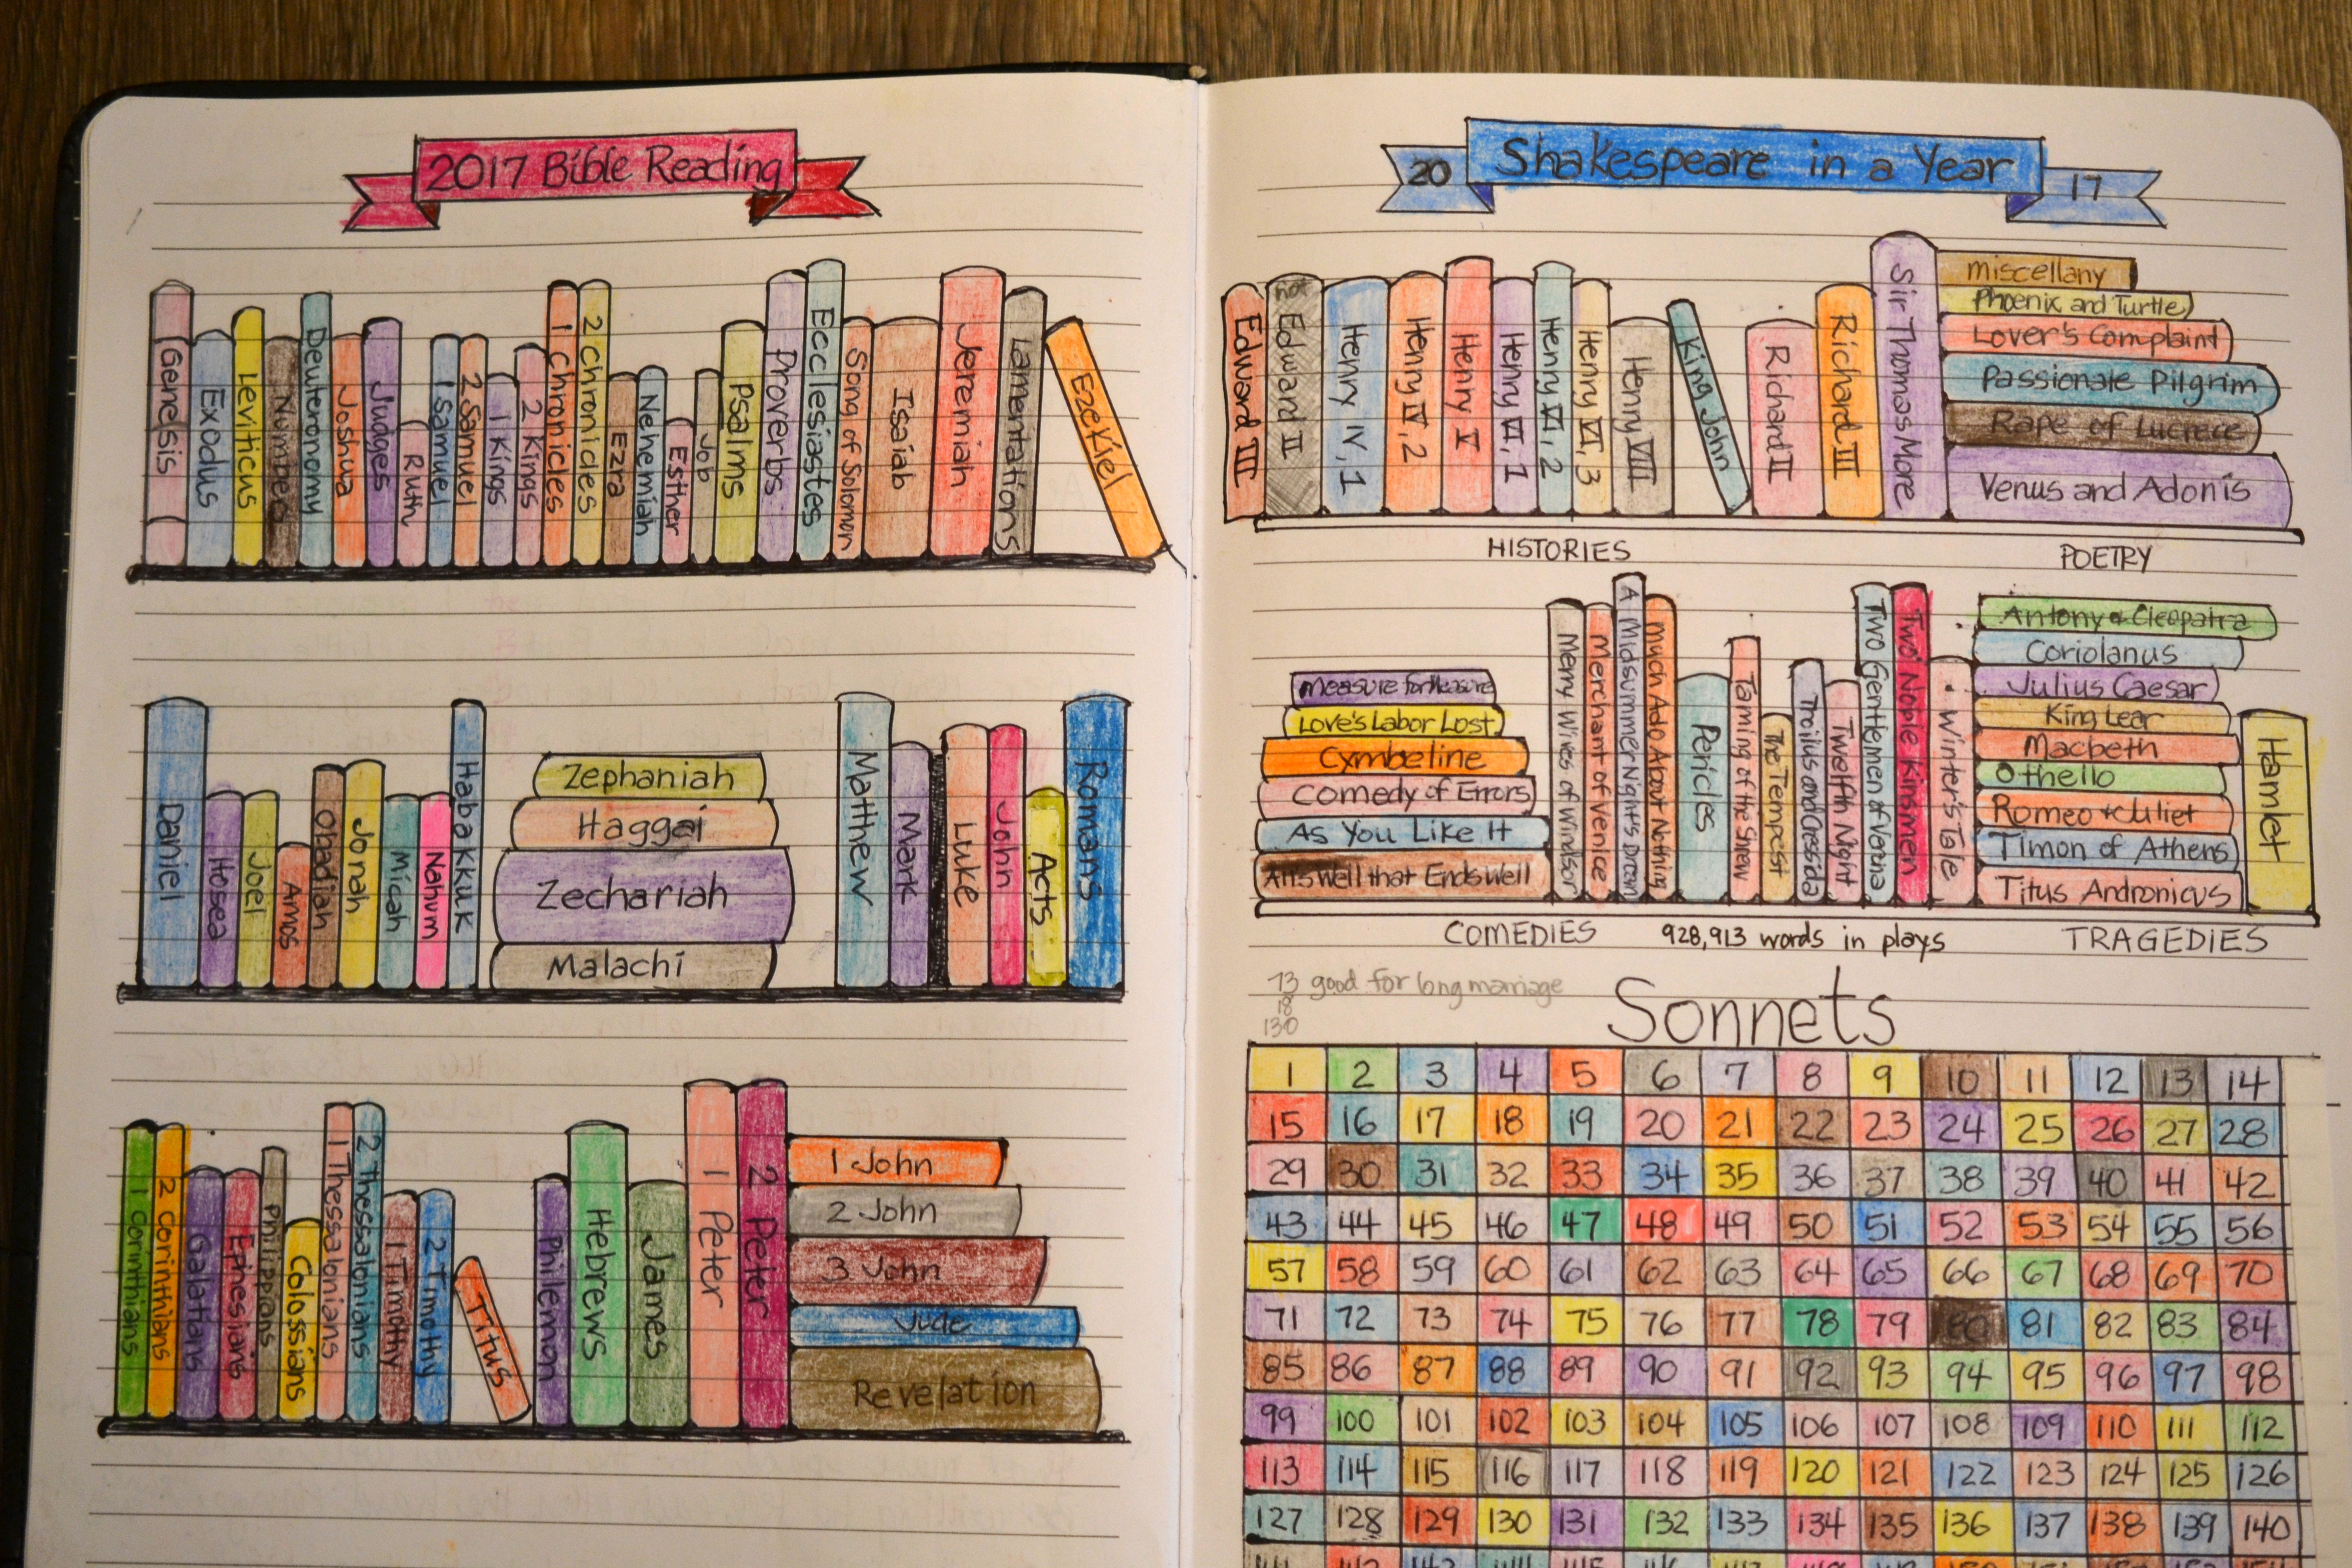 2017 Bible Reading
Genesis
Exodus
Leviticus
Numbers
Deuteronomy
Joshua
Judges
Ruth
1 Samuel
2 Samuel
1 Kings
2 Kings
1 Chronicles
2 Chronicles
Ezra
Nehemiah
Esther
Job
Psalms
Proverbs
Ecclesiastes
Song of Solomon
Isaiah
Jeremiah
Lamentations
Ezekiel
Daniel
Hosea
Joel
Amos
Obadiah
Jonah
Micah
Nahum
Habakkuk
Zephaniah
Haggai
Zechariah
Malachi
Matthew
Mark
Luke
John
Acts
Romans
1 Corinthians
2 Corinthians
Galatians
Ephesians
Philippians
Colossians
1 Thessalonians
2 Thessalonians
1 Timothy
2 Timothy
Titus
Philemon
Hebrews
James
1 Peter
2 Peter
1 John
2 John
3 John
Jude
Revelation
20 Shakespeare in a Year 17
Edward III
not Edward II
Henry IV, 1
Henry IV, 2
Henry V
Henry VI, 1
Henry VI, 2
Henry VI, 3
Henry VIII
King John
Richard II
Richard III
Sir Thomas More
miscellany
Phoenix and Turtle
Lover's Complaint
Passionate Pilgrim
Rape of Lucrece
Venus and Adonis
HISTORIES
POETRY
Measure for Measure
Love's Labor Lost
Cymbeline
Comedy of Errors
As You Like It
All's Well that Ends Well
Merry Wives of Windsor
Merchant of Venice
A Midsummer Night's Dream
Much Ado About Nothing
Pericles
Taming of the Shrew
The Tempest
Troilus and Cressida
Twelfth Night
Two Gentlemen of Verona
Two Noble Kinsmen
Winter's Tale
Antony & Cleopatra
Coriolanus
Julius Caesar
King Lear
Macbeth
Othello
Romeo + Juliet
Timon of Athens
Titus Andronicus
Hamlet
COMEDIES
928,913 words in plays
TRAGEDIES
73 good for long marriage
18
130
Sonnets
1 2 3 4 5 6 7 8 9 10 11 12 13 14
15 16 17 18 19 20 21 22 23 24 25 26 27 28
29 30 31 32 33 34 35 36 37 38 39 40 41 42
43 44 45 46 47 48 49 50 51 52 53 54 55 56
57 58 59 60 61 62 63 64 65 66 67 68 69 70
71 72 73 74 75 76 77 78 79 80 81 82 83 84
85 86 87 88 89 90 91 92 93 94 95 96 97 98
99 100 101 102 103 104 105 106 107 108 109 110 111 112
113 114 115 116 117 118 119 120 121 122 123 124 125 126
127 128 129 130 131 132 133 134 135 136 137 138 139 140